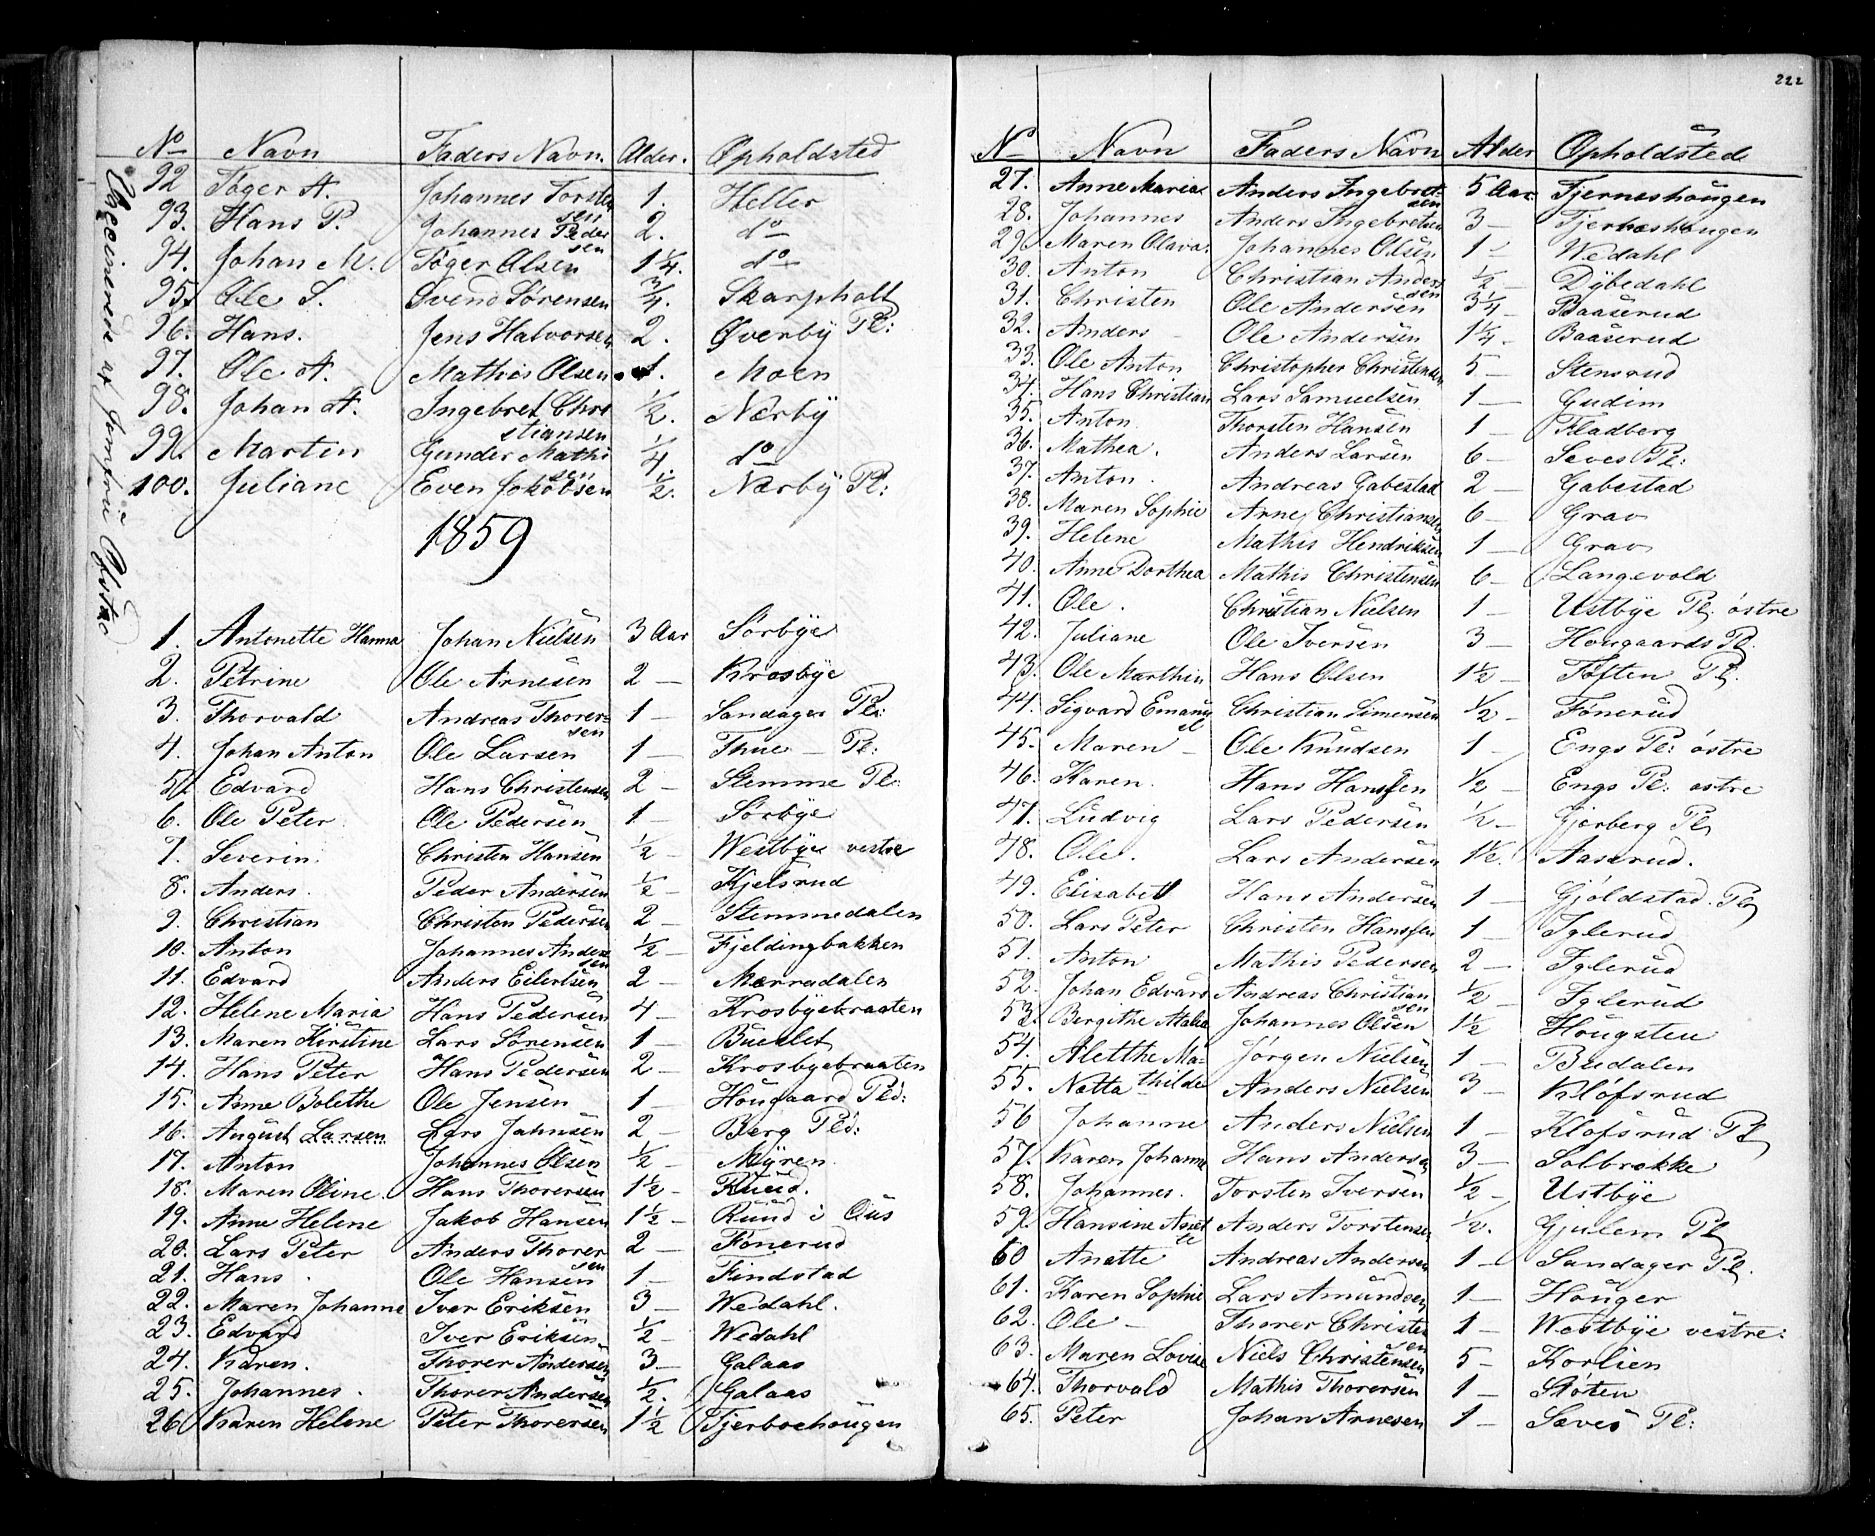 Vaccinerede af Jomfru Ofstad
No Navn Faders Navn. Alder. Opholdsted
92 Töger A. Johannes Torstensen 1. Heller
93. Hans P. Johannes Pedersen 2. do
94. Johan M. Töger Olsen 1¼. do
95. Ole S. Svend Sörensen ¾. Skarpholt
96. Hans. Jens Halvorsen 2. Øverby Pl:
97. Ole A. Mathis Olsen 1. Moen
98. Johan A. Ingebret Christiansen ½. Nærby
99. Martin Gunder Mathisen ¼. do
100. Juliane Even Jokobsen ½. Nærby Pl:
1859
1. Antonette Hanna Johan Nielsen 3 Aar Sörbye
2. Petrine Ole Arnesen 2 — Krosbye
3. Thorvald Andreas Thorersen 1 — Sandager Pl:
4. Johan Anton Ole Larsen 1 — Thue — Pl:
5. Edvard Hans Christensen 2 — Stemme Pl:
6. Ole Peter Ole Pedersen 1 — Sörbye
7. Severin. Christen Hansen ½ — Westbye vestre
8. Anders. Peder Andersen ½ — Kjelsrud
9. Christian Christen Pedersen 2 — Stemmedalen
10. Anton Johannes Andersen ½ — Fjeldingbakken
11. Edvard Anders Eilertsen 2 — Mærradalen
12. Helene Maria Hans Pedersen 4 — Krosbyebraaten
13. Maren Kirstine Lars Sörensen 1 — Buerlet
14. Hans Peter Hans Pedersen 2 — Krosbyebraaten
15. Anne Bolethe Ole Jensen 1 — Hougaard Pld:
16. August Larsen Lars Jahnsen 2 — Berg Pld:
17. Anton Johannes Olsen ½ — Myren
18. Maren Oline. Hans Thorersen 1½ — Ruud.
19. Anne Helene Jakob Hansen 1½ — Ruud i Ous
20. Lars Peter Anders Thorersen 2 — Fönerud
21. Hans. Ole Hansen 1 — Findstad
22. Maren Johanne Iver Eriksen 3 — Wedahl.
23. Edvard Iver Eriksen ½ — Wedahl
24. Karen. Thorer Andersen 3 — Galaas
25. Johannes. Thorer Andersen ½. Galaas
26. Karen Helene Peter Thorersen 1½ Tjerboehougen
222
No Navn Faders Navn Alder Opholdsted
27. Anne Maria Anders Ingebretsen 5 Aar Tjerneshougen
28. Johannes Anders Ingebretsen 3 — Tjerneshougen
29. Maren Olava. Johannes Olsen 1 — Wedahl
30. Anton Christian Andersen ½ — Dybedahl
31. Christen Ole Andersen 3¼ — Baaserud
32. Anders Ole Andersen 1¼ — Baaserud
33. Ole Anton Christopher Christensen 5 — Stensrud
34. Hans Christian Lars Samuelsen 1 — Gudim
35. Anton. Thorsten Hansen 1 — Fladberg
36. Mathea. Anders Larsen 6 — Seves Pl:
37. Anton. Andreas Gabestad 2 — Gabestad
38. Maren Sophie Arne Christiansen 6 — Grav
39. Helene Mathis Hendriksen 1 — Grav
40. Anne Dorthea Mathis Christensen 6 — Langevold
41. Ole. Christian Nielsen 1 — Ustbye Pl. östre
42. Juliane Ole Iversen 3 — Hougaards Pl.
43. Ole Marthin Hans Olsen 1½ — Töften Pl.
44. Sigvard Emanuel Christian Simensen ½ — Fönerud
45. Maren — Ole Knudsen 1 — Engs Pl: östre
46. Karen. Hans Hanssen ½ — Engs Pl: ostre
47. Ludvig Lars Pedersen ½ — Gjerberg Pl
48. Ole. Lars Andersen 1½. Aaserud.
49. Elisabett Hans Andersen 1 — Gjöldstad. Pl
50. Lars Peter Christen Hanssen 1 — Iglerud
51. Anton Mathis Pedersen 2 — Iglerud
52. Johan Edvard Andreas Christiansen ½ — Iglerud
53. Bergithe Malea Johannes Olsen 1½ Hougsten
54. Aletthe Mathilde Jörgen Nielsen 1 — Budalen
55. Netta — Anders Nielsen 3 — Klöfsrud
56 Johanne Anders Nielsen 1 — Klöfsrud Pl
57. Karen Johanne Hans Andersen 3 — Solbrække
58. Johannes. Torsten Iversen ½ — Ustbye
59. Hansine Anette Anders Torstensen ½. Gjulem Pl
60 Anette Andreas Andersen 1 — Sandager Pl.
61. Karen Sophie Lars Amundsen 1 — Houger
62. Ole — Thorer Christensen 1 — Westbye vestre:
63. Maren Lovise Niels Christensen 5 — Korlien
64. Thorvald Mathis Thorersen 1 — Stöten
65. Peter Johan Arnesen 1 — Sæves Pl: